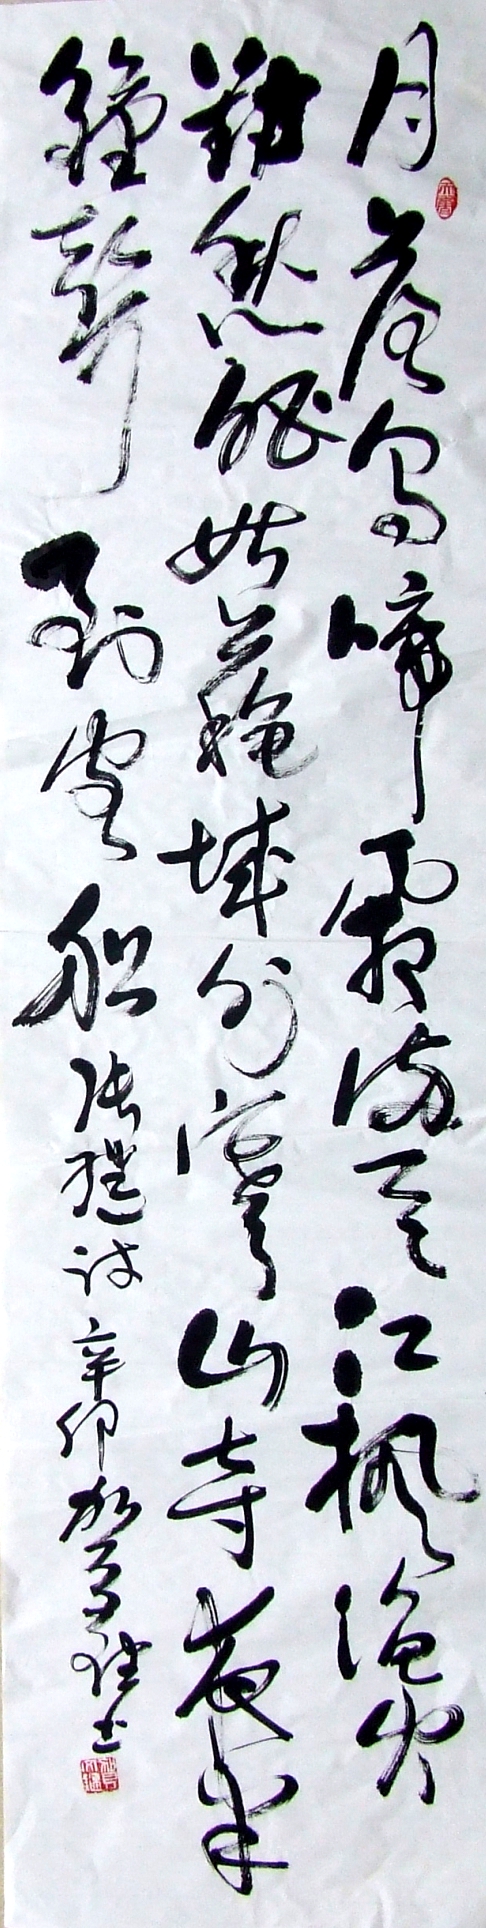 月落烏啼霜满天江楓漁火
對愁眠姑蘇城外寒山寺夜半
鐘聲到客船张继诗辛卯